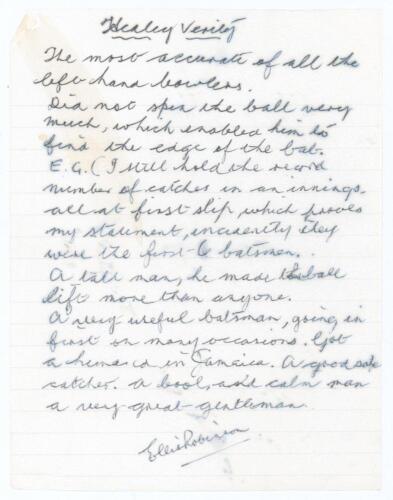 Healey Verity
The most accurate of all the
left hand bowlers.
Did not spin the ball very
much, which enabled him to
find the edge of the bat.
E.G. (I still hold the record
number of catches in an innings.
all at first slip, which proves
my statement, incidently they
were the first 6 batsmen.
A tall man, he made the ball
lift more than anyone.
A very useful batsman, going in
first on many occasions. Got
a in Jamaica. A good safe
catcher. A cool, and calm man
a very great gentleman
Ellis Robinson